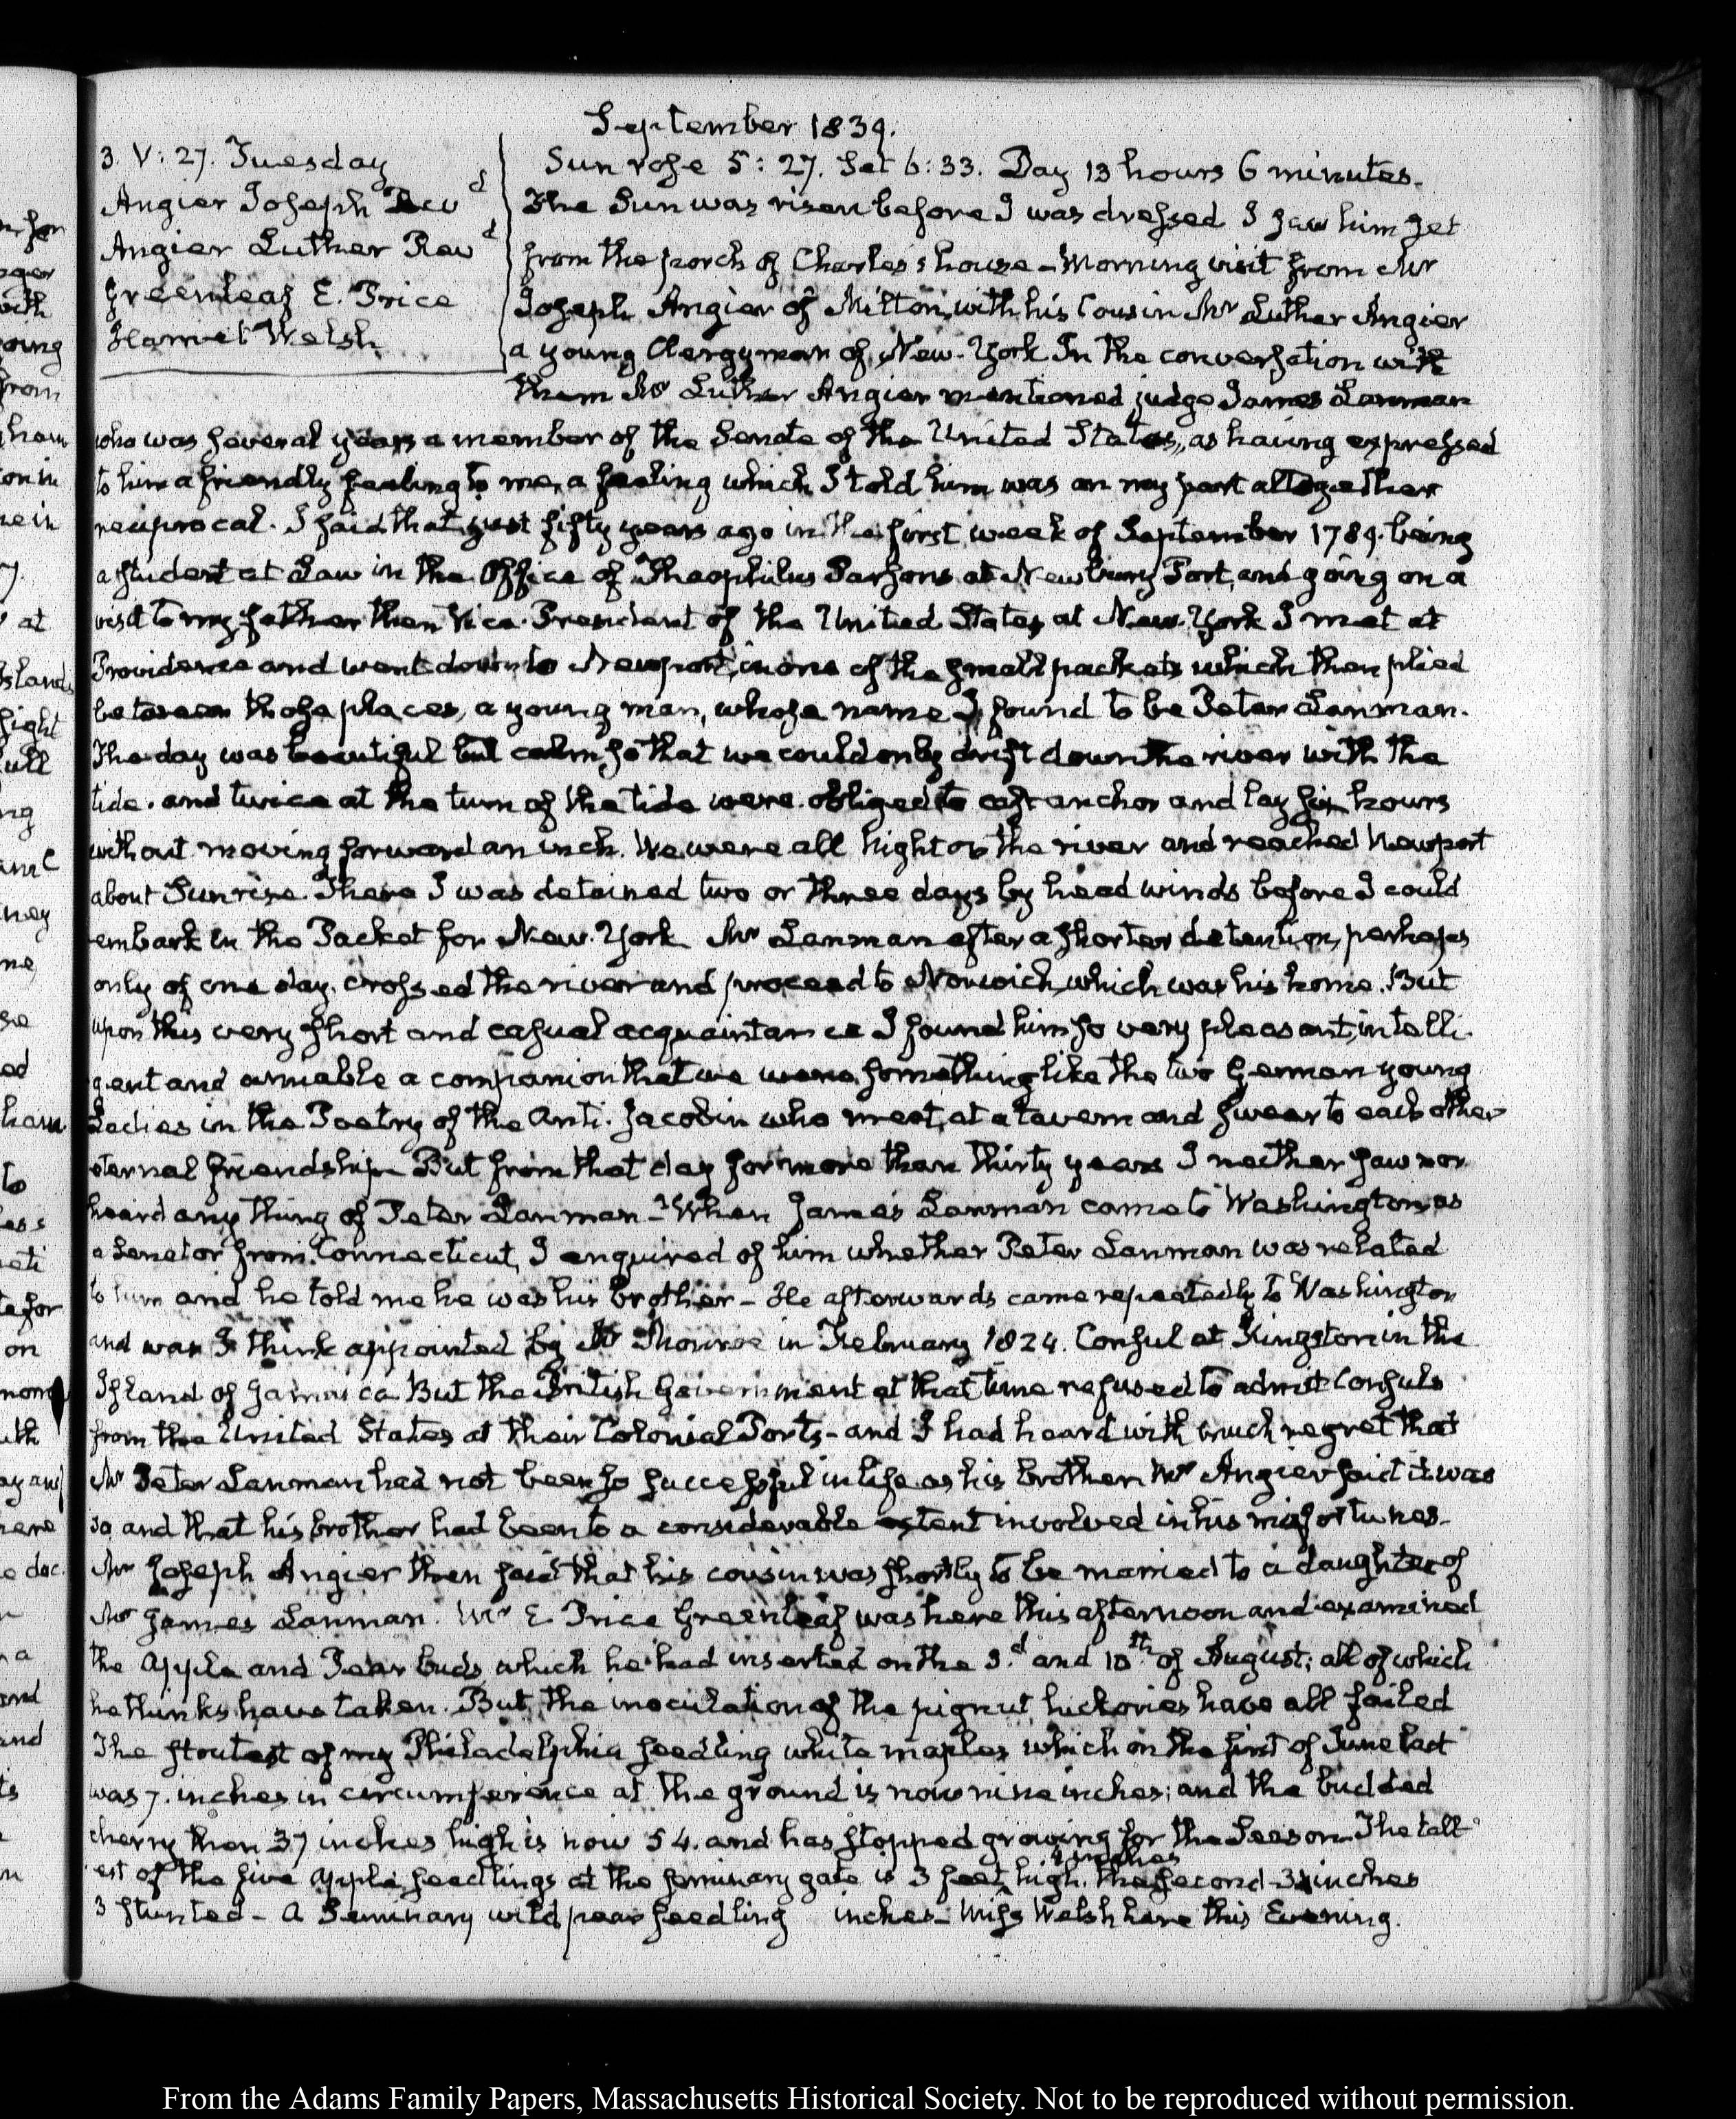 September 1839.
3. V: 27. Tuesday
Angier Joseph Revd
Angier Luther Revd
Greenleaf E. Price
Harriet Welsh
Sun rose 5: 27. Set 6: 33. Day 13 hours 6 minutes.
The Sun was risen before I was dressed I saw him set
from the porch of Charles's house – Morning visit from Mr
Joseph Angier of Milton, with his Cousin Mr Luther Angier
a young Clergyman of New-York In the conversation with
them Mr Luther Angier mentioned judge James Lanman
who was several years a member of the Senate of the United States, as having expressed
to him a friendly feeling to me, a feeling which I told him was on my part altogether
reciprocal. I said that just fifty years ago in the first week of September 1789. being
a student at Law in the Office of Theophilus Parsons at Newbury Port, and going on a
visit to my father then Vice-President of the United States at New-York I met at
Providence and went down to Newport, in one of the small packets which then plied
between those places, a young man, whose name I found to be Peter Lanman.
The day was beautiful but calm, so that we could only drift down the river with the
tide. and twice at the turn of the tide were obliged to cast anchor and lay six hours
without moving forward an inch. We were all Night on the river and reached Newport
about Sunrise. There I was detained two or three days by head winds before I could
embark in the Packet for New-York Mr Lanman after a shorter detention, perhaps
only of one day. crossed the river and proceed to Norwich, which was his home. But
upon this very short and casual acquaintance I found him so very pleasant, intelli-
gent and amiable a companion that we were something like the two German young
Ladies in the Poetry of the Anti-Jacobin who meet, at a tavern and swear to each other
eternal friendship – But from that day for more than thirty years I neither saw nor
heard any thing of Peter Lanman – When James Lanman came to Washington as
a Senator from Connecticut, I enquired of him whether Peter Lanman was related
to him and he told me he was his brother – He afterwards came repeatedly to Washington
and was I think appointed by Mr Monroe in February 1824. Consul at Kingston in the
Island of Jamaica But the British Government at that time refused to admit Consuls
from the United States at their Colonial Ports – and I had heard with much regret that
Mr Peter Lanman had not been so successful in life as his brother Mr Angier said it was
so and that his brother had been to a considerable extent involved in his misfortunes –
Mr Joseph Angier then said that his cousin was shortly to be married to a daughter of
Mr James Lanman. Mr E. Price Greenleaf was here this afternoon and examined
the apple and Pear buds which he had inserted on the 3d and 10th of August; all of which
he thinks have taken. But the inoculation of the pignut hickories have all failed
The stoutest of my Philadelphia seedling white maples which on the first of June last
was 7. inches in circumference at the ground is now nine inches; and the budded
cherry then 37 inches high is now 54. and has stopped growing for the Season – The tall-
est of the five apple seedlings at the seminary gate is 3 feet 4 inches high. the second 3 inches
3 stunted – a Seminary wild pear seedling inches – Miss Welsh here this Evening.
From the Adams Family Papers, Massachusetts Historical Society. Not to be reproduced without permission.